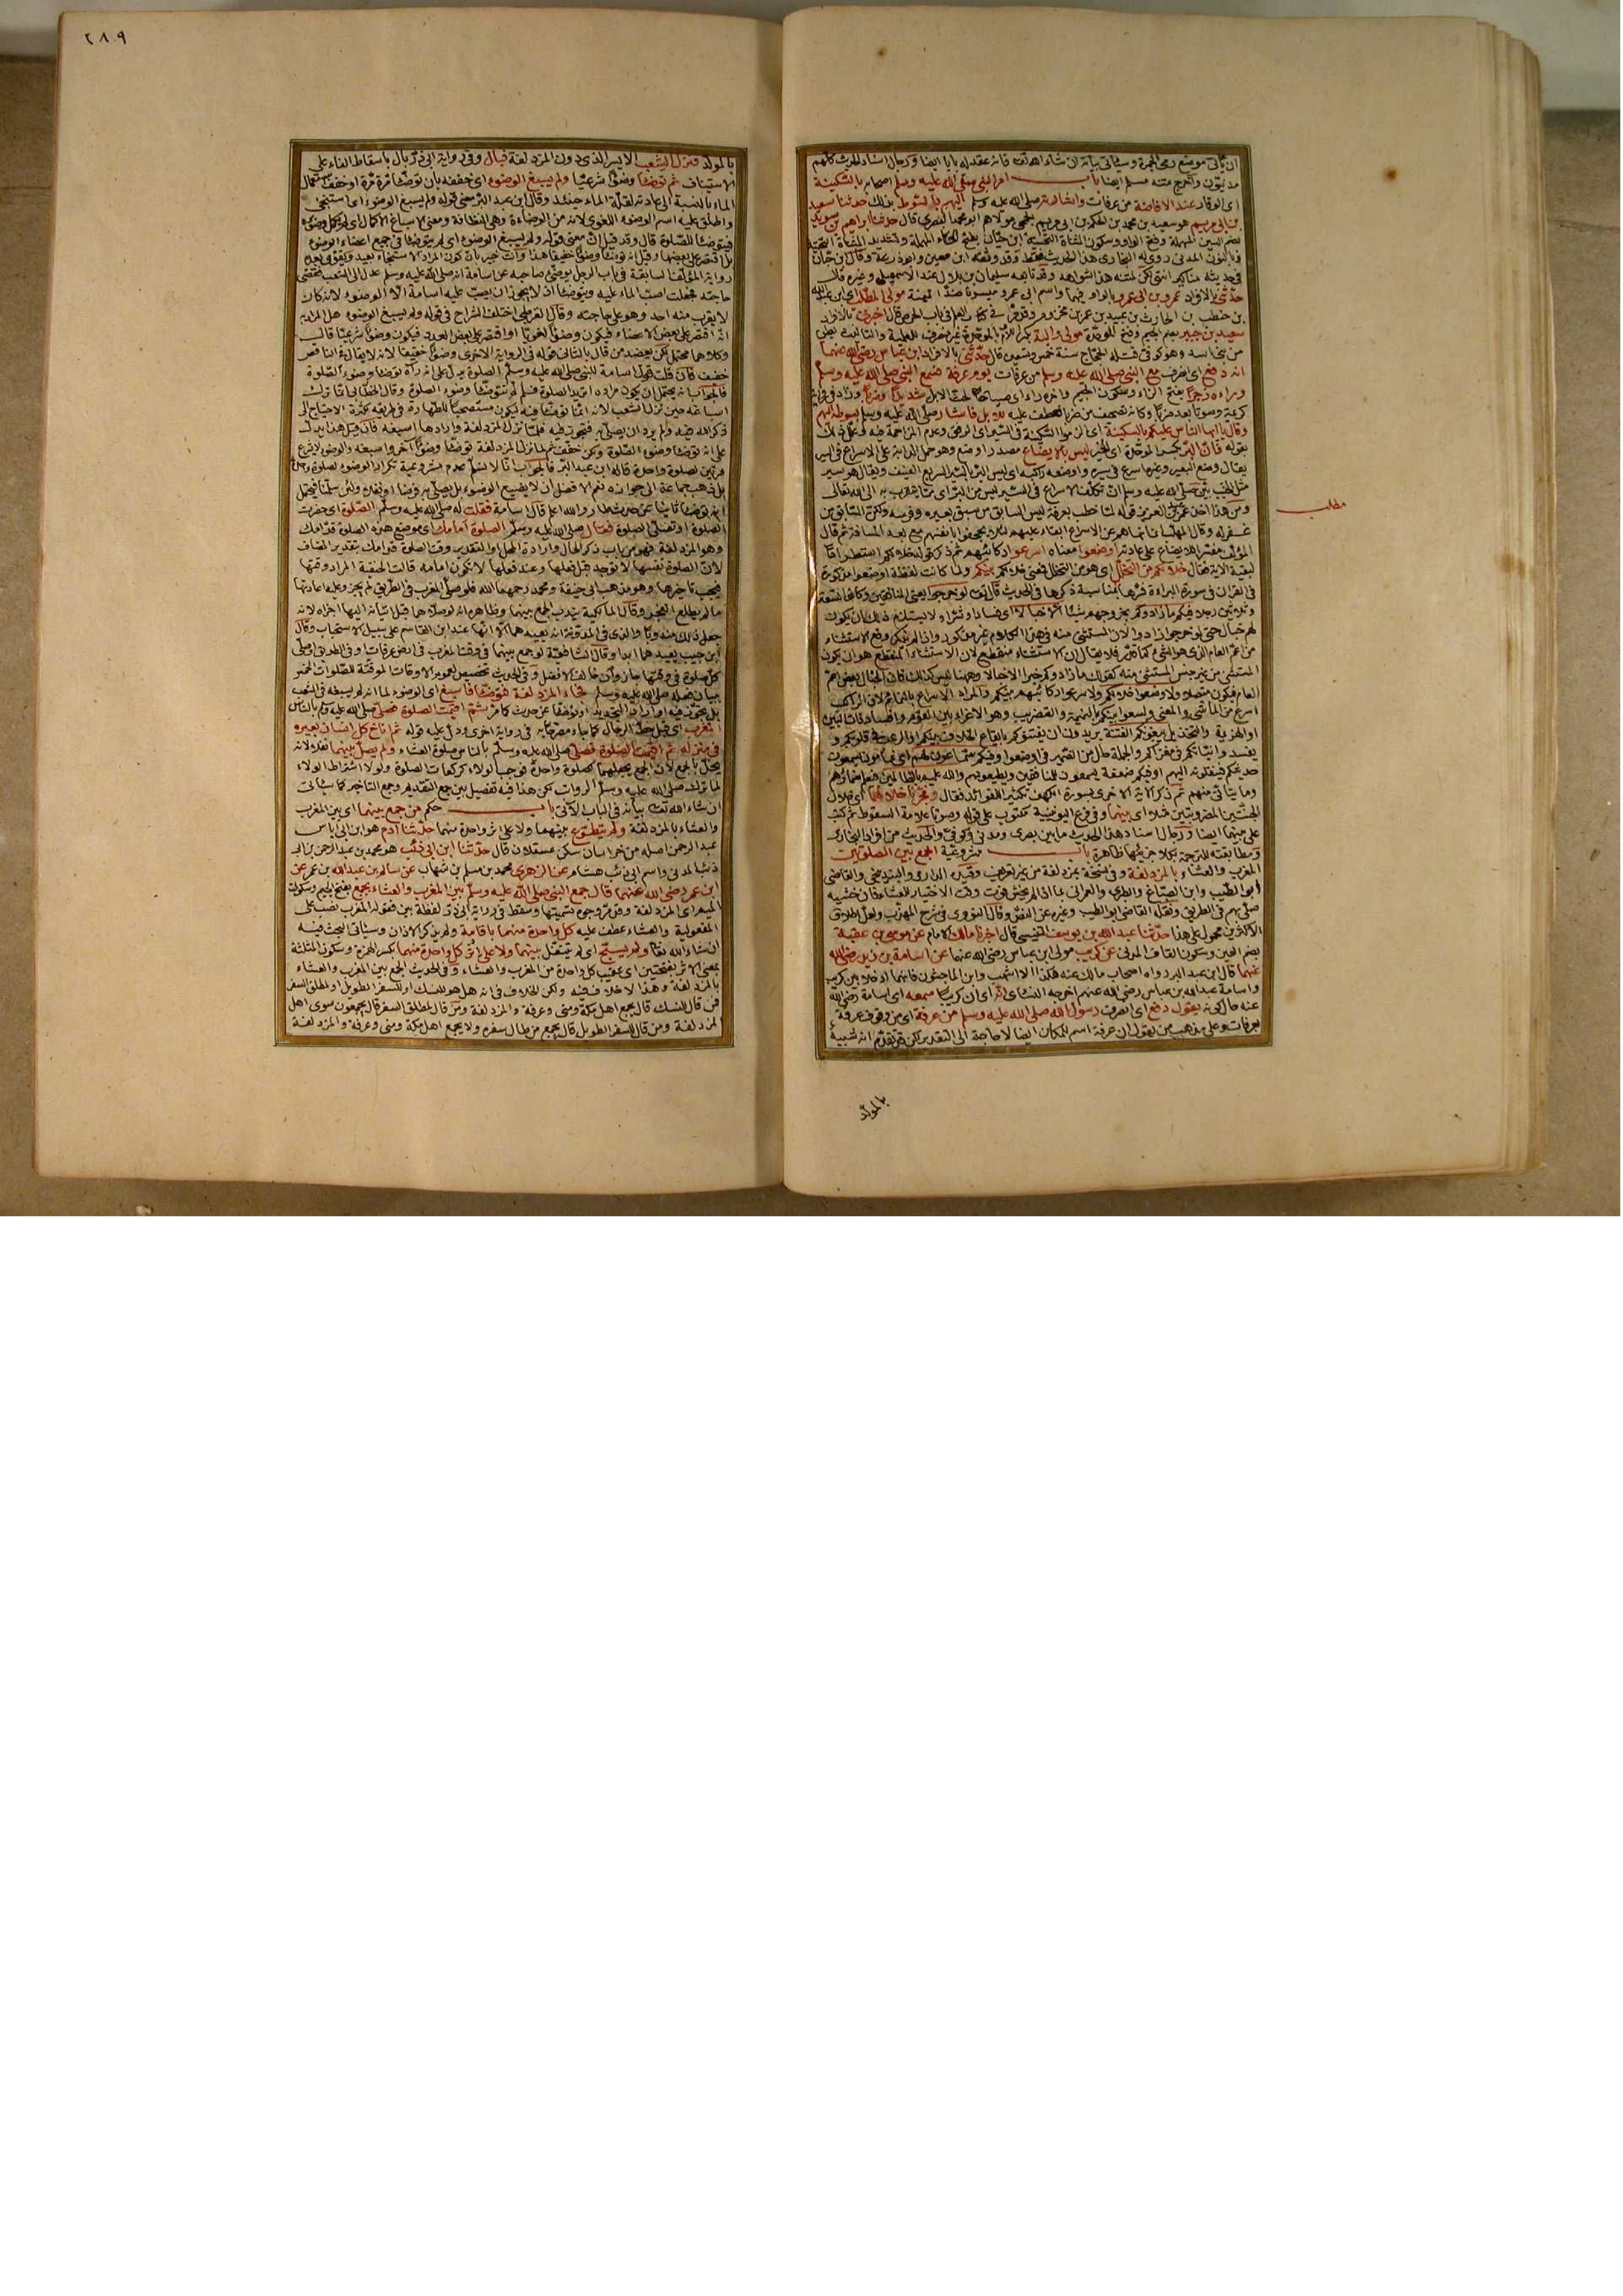 ان يأتي موضع رمي الجمرة وسيأتي بيانه ان شاء الله تعالى فانه عقد له بابا ايضا ورجال اسناد الحديث كلهم
مدنيون واخرج متنه مسلم ايضا باب امر النبي صلى الله عليه وسلم اصحابه بالسكينة
اي الوقار عند الافاضة من عرفات واشارته صلى الله عليه وسلم اليهم بالسوط بذلك حدثنا سعيد
بن ابي مريم هو سعيد بن محمد بن الحكم بن ابي مريم الجمحي مولاهم ابو محمد البصري قال حدثنا ابراهيم بن سويد
بضم السين المهملة وفتح الواو وسكون المثناة التحتية ابن حيان بفتح الحاء المهملة وتشديد المثناة التحتية
وبالنون المدني روى له البخاري هذا الحديث فقط وقد وثقه ابن معين وابو زرعة وقال ابن حبان
في حديثه مناكير انتهى لكن لمتنه هذا شواهد وقد تابعه سليمان بن بلال عند الاسمعيلي وغيره قال
حدثني بالافراد عمرو بن ابي عمرو بالواو فيهما واسم ابي عمرو ميسرة ضد الميمنة مولى المطلب اي ابن عبد الله
بن حنطب بن الحارث بن عبيد بن عمر بن مخزوم وقد مر في كتاب العلم في باب الحرص قال اخبرني بالافراد
سعيد بن جبير بضم الجيم وفتح الموحدة مولى والبة بكسر اللام
من بني اسد وهو كوفي قتله الحجاج سنة خمس وتسعين قال حدثني بالافراد ابن عباس رضي الله عنهما
انه دفع اي انصرف مع النبي صلى الله عليه وسلم من عرفات يوم عرفة فسمع النبي صلى الله عليه وسلم
وراءه زجرا بفتح الزاء وسكون الجيم واخره راء اي صياحا لحث الابل شديدا وضربا وزاد في رواية
كريمة وصوتا بعد ضربا وكانه تصحيف من ضربا فعطف عليه للابل فاشار صلى الله عليه وسلم بسوطه اليهم
وقال يا ايها الناس عليكم بالسكينة اي الزموا السكينة في السير اي الرفق وعدم المزاحمة فيه وعلل ذلك
بقوله فان البر بكسر الموحدة اي الخير ليس بالايضاع مصدر اوضع وهو حمل الدابة على الاسراع في السير
يقال وضع البعير وغيره اسرع في سيره واوضعه راكبه اي ليس البر بالسير السريع العنيف ويقال هو سير
مثل الخبب بين صلى الله عليه وسلم ان تكلف الاسراع في السير ليس من البر اي مما يتقرب به الى الله تعالى
ومن هذا اخذ عمر بن عبد العزيز قوله لما خطب بعرفة ليس السابق من سبق بعيره وفرسه ولكن السابق من
غفر له وقال المهلب انما نهاهم عن الاسراع ابقاء عليهم لئلا يجحفوا بانفسهم مع بعد المسافة ثم قال
المؤلف مفسرا للايضاع على عادته اوضعوا معناه اسرعوا ركائبهم ثم ذكر قوله خلالكم استطرادا
لبقية الاية فقال خلالكم من التخلل اي هو من التخلل فمعنى خلالكم بينكم ولما كانت لفظة اوضعوا مذكورة
في القران في سورة البراءة فسرها بمناسبة ذكرها في الحديث قال تعالى لو خرجوا يعني المنافقين
فيكم ما زادوكم بخروجهم شيئا الا خبالا اي فسادا وشرا ولا يستلزم ذلك ان يكون
لهم خبال حتى لو خرجوا زادوا لان المستثنى منه في هذا الكلام غير مذكور واذا لم يذكر وقع الاستثناء
من اعم العام الذي هو الشيء فلا يقال ان الاستثناء منقطع لان الاستثناء المنقطع هو ان يكون
المستثنى من غير جنس المستثنى منه كقولك ما زادوكم خيرا الا خبالا وههنا ليس كذلك
العام فيكون متصلا ولاوضعوا خلالكم ولاسرعوا ركائبهم بينكم والمراد الاسراع بالنمائم لان الراكب
اسرع من الماشي والمعنى ولسعوا بينكم بالنميمة والتضريب
او الهزيمة والتخذيل يبغونكم الفتنة يريدون ان يفتنوكم بايقاع الخلاف بينكم او الرعب في قلوبكم
حديثكم فينقلونه اليهم او فيكم ضعفة يسمعون للمنافقين ويطيعونهم والله عليم بالظالمين فيعلم ضمائرهم
وما يتأتى منهم ثم ذكر الآية الاخرى بسورة الكهف تكثيرا للفوائد فقال وفجرنا خلالهما اي خلال
الجنتين المضروبتين مثلا اي بينهما وفي فرع اليونينية مكتوب علامة السقوط
على بينهما ايضا ورجال اسناد هذا الحديث ما بين بصري ومدني وكوفي والحديث من افراد البخاري
ومطابقته للترجمة بكلا جزئيها ظاهرة باب مشروعية الجمع بين الصلوتين
المغرب والعشاء بالمزدلفة وفي نسخة بمزدلفة من غير تعريف وقيد الدارمي والبندنيجي والقاضي
ابو الطيب وابن الصباغ والطبري والعمراني بما اذا لم يخش فوت وقت الاختيار للعشاء فان خشيه
صلى بهم في الطريق ونقله القاضي ابو الطيب وغيره عن النص وقال النووي في شرح المهذب ولعل اطلاق
الاكثرين محمول على هذا حدثنا عبد الله بن يوسف التنيسي قال اخبرنا مالك الامام عن موسى بن عقبة
بضم العين وسكون القاف المدني عن كريب مولى ابن عباس رضي الله عنهما عن اسامة بن زيد رضي الله
عنهما قال ابن عبد البر رواه اصحاب مالك عنه هكذا الا اشهب وابن الماجشون فانهما ادخلا بين كريب
واسامة عبد الله بن عباس رضي الله عنهم اخرجه النسائي انه اي ان كريبا سمعه اي اسامة رضي الله
عنه حال كونه يقول دفع اي انصرف رسول الله صلى الله عليه وسلم من عرفة اي من وقوف عرفة
بعرفات وعلى مذهب من يقول ان عرفة اسم المكان ايضا لا حاجة الى التقدير
بالمولد
مطلب
٢٨٩
بالمولد فنزل الشعب الايسر الذي دون المزدلفة فبال وفي رواية ابي ذر بال باسقاط الفاء على
الاستيناف ثم توضأ وضوءا شرعيا ولم يسبغ الوضوء اي خففه بان توضأ مرة مرة او خفف استعمال
الماء بالنسبة الى عادته لقلة الماء حينئذ وقال ابن عبد البر معنى قوله ولم يسبغ الوضوء اي استنجى
واطلق عليه اسم الوضوء اللغوي لانه من الوضاءة وهي النظافة ومعنى الاسباغ الاكمال اي لم يكمل وضوءه
فيتوضأ للصلوة قال وقد قيل ان معنى قوله ولم يسبغ الوضوء اي لم يتوضأ في جميع اعضاء الوضوء
بل اقتصر على بعضها وقيل انه توضأ وضوءا خفيفا
رواية المؤلف السابقة في باب الرجل يوضئ صاحبه عن اسامة انه صلى الله عليه وسلم عدل الى الشعب فقضى
حاجته فجعلت اصب الماء عليه ويتوضأ اذ لا يجوز ان يصب عليه اسامة الا الوضوء لانه كان
لا يقرب منه احد وهو على حاجته وقال القرطبي اختلف الشراح في قوله ولم يسبغ الوضوء هل المراد به
انه اقتصر على بعض الاعضاء فيكون وضوءا لغويا او اقتصر على بعض العدد فيكون وضوءا شرعيا قال
وكلاهما محتمل لكن يعضد من قال بالثاني قوله في الرواية الاخرى وضوءا خفيفا لانه لا يقال في الناقص
خفيف فان قلت قول اسامة للنبي صلى الله عليه وسلم الصلوة يدل على انه رآه توضأ وضوء الصلوة
فالجواب انه يحتمل ان يكون مراده اتريد الصلوة فلم لم تتوضأ وضوء الصلوة وقال الخطابي انما ترك
اسباغه حين نزل الشعب ليكون مستصحبا للطهارة في طريقه
ذكر الله فيه ولم يرد ان يصلي به فتجوز فيه فلما نزل المزدلفة وارادها اسبغه فان قيل هذا يدل
على انه توضأ وضوء الصلوة ولكن خفف ثم لما نزل المزدلفة توضأ وضوءا آخر واسبغه والوضوء لا يشرع
مرتين لصلوة واحدة قاله ابن عبد البر فالجواب انا لا نسلم عدم مشروعية تكرار الوضوء لصلوة واحدة
بل ذهب جماعة الى جوازه
انه توضأ ثانيا عن حدث طار والله اعلم قال اسامة فقلت له صلى الله عليه وسلم الصلوة اي حضرت
الصلوة او تصلي الصلوة فقال صلى الله عليه وسلم الصلوة امامك اي موضع هذه الصلوة قدامك
وهو المزدلفة فهو من باب ذكر الحال وارادة المحل او التقدير وقت الصلوة قدامك بتقدير المضاف
لان الصلوة نفسها لا توجد قبل فعلها وعند فعلها لا تكون امامه قالت الحنفية المراد وقتها
فيجب تأخيرها وهو مذهب ابي حنيفة ومحمد رحمهما الله فلو صلى المغرب في الطريق لم يجز وعليه اعادتها
ما لم يطلع الفجر وقال المالكية يندب الجمع بينهما وظاهره انه لو صلاهما قبل اتيانه اليها اجزاه لانه
جعل ذلك مندوبا والذي في المدونة انه يعيدهما الا انها عند ابن القاسم على سبيل الاستحباب وقال
ابن حبيب يعيدهما ابدا وقال الشافعية لو جمع بينهما في وقت المغرب في ارض عرفات او في الطريق او صلى
كل صلوة في وقتها جاز وان خالف الافضل وفي الحديث تخصيص لعموم الاوقات الموقتة للصلوات الخمس
ببيان فعله صلى الله عليه وسلم فجاء المزدلفة فتوضأ فاسبغ اي الوضوء لما انه لم يسبغه في الشعب
بل تجوز فيه او اراد التجديد او توضأ عن حدث كما مر ثم اقيمت الصلوة فصلى صلى الله عليه وسلم بالناس
المغرب اي قبل حط الرحال كما جاء مصرحا به في رواية اخرى ودل عليه قوله ثم اناخ كل انسان بعيره
في منزله ثم اقيمت الصلوة فصلى صلى الله عليه وسلم بالناس صلوة العشاء ولم يصل بينهما نفلا لانه
يخل بالجمع لان الجمع يجعلهما كصلوة واحدة فوجب الولاء كركعات الصلوة ولولا اشتراط الولاء
لما ترك صلى الله عليه وسلم الرواتب لكن هذا فيه تفصيل بين جمع التقديم وجمع التأخير كما سيأتي
ان شاء الله تعالى بيانه في الباب الآتي باب حكم من جمع بينهما اي بين المغرب
والعشاء بالمزدلفة ولم يتطوع بينهما ولا على اثر واحدة منهما حدثنا آدم هو ابن ابي اياس
عبد الرحمن اصله من خراسان سكن عسقلان قال حدثنا ابن ابي ذئب هو محمد بن عبد الرحمن بن ابي
ذئب المدني واسم ابي ذئب هشام عن الزهري محمد بن مسلم بن شهاب عن سالم بن عبد الله بن عمر عن
ابن عمر رضي الله عنهما قال جمع النبي صلى الله عليه وسلم بين المغرب والعشاء بجمع بفتح الجيم وسكون
الميم اي المزدلفة وقد مر وجوه تسميتها وسقط في رواية ابي ذر لفظة بين فقوله المغرب نصب على
المفعولية والعشاء عطف عليه كل واحدة منهما باقامة ولم يذكر الاذان وسيأتي البحث فيه
ان شاء الله تعالى ولم يسبح اي لم يتنفل بينهما ولا على اثر كل واحدة منهما بكسر الهمزة وسكون المثلثة
بمعنى الاثر بفتحتين اي عقيب كل واحدة من المغرب والعشاء وفي الحديث الجمع بين المغرب والعشاء
بالمزدلفة وهذا لا خلاف فيه ولكن الخلاف في انه هل هو للنسك او للسفر الطويل او لمطلق السفر
فمن قال للنسك قال يجمع اهل مكة ومنى وعرفة والمزدلفة ومن قال لمطلق السفر قال يجمعون سوى اهل
المزدلفة ومن قال للسفر الطويل قال يجمع من طال سفره ولا يجمع اهل مكة ومنى وعرفة والمزدلفة